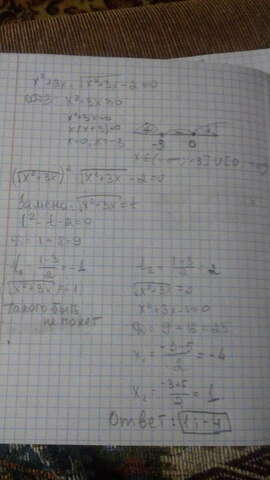 x²+3x-√(x²+3x)-2=0
x²+3x≥0
x²+3x=0
x(x+3)=0
x=0, x=-3
-3 0
x∈(-∞;-3]∪[0
(√(x²+3x))²-√(x²+3x)-2=0
Замена: √(x²+3x)=t
t²-t-2=0
D=1+8=9
t₁=(1-3)/2=-1
такого быть
не может
t₂=(1+3)/2=2
√(x²+3x)=2
x²+3x-4=0
D=9+16=25
x₁=(-3-5)/2=-4
x₂=(-3+5)/2=1
Ответ: 1; -4